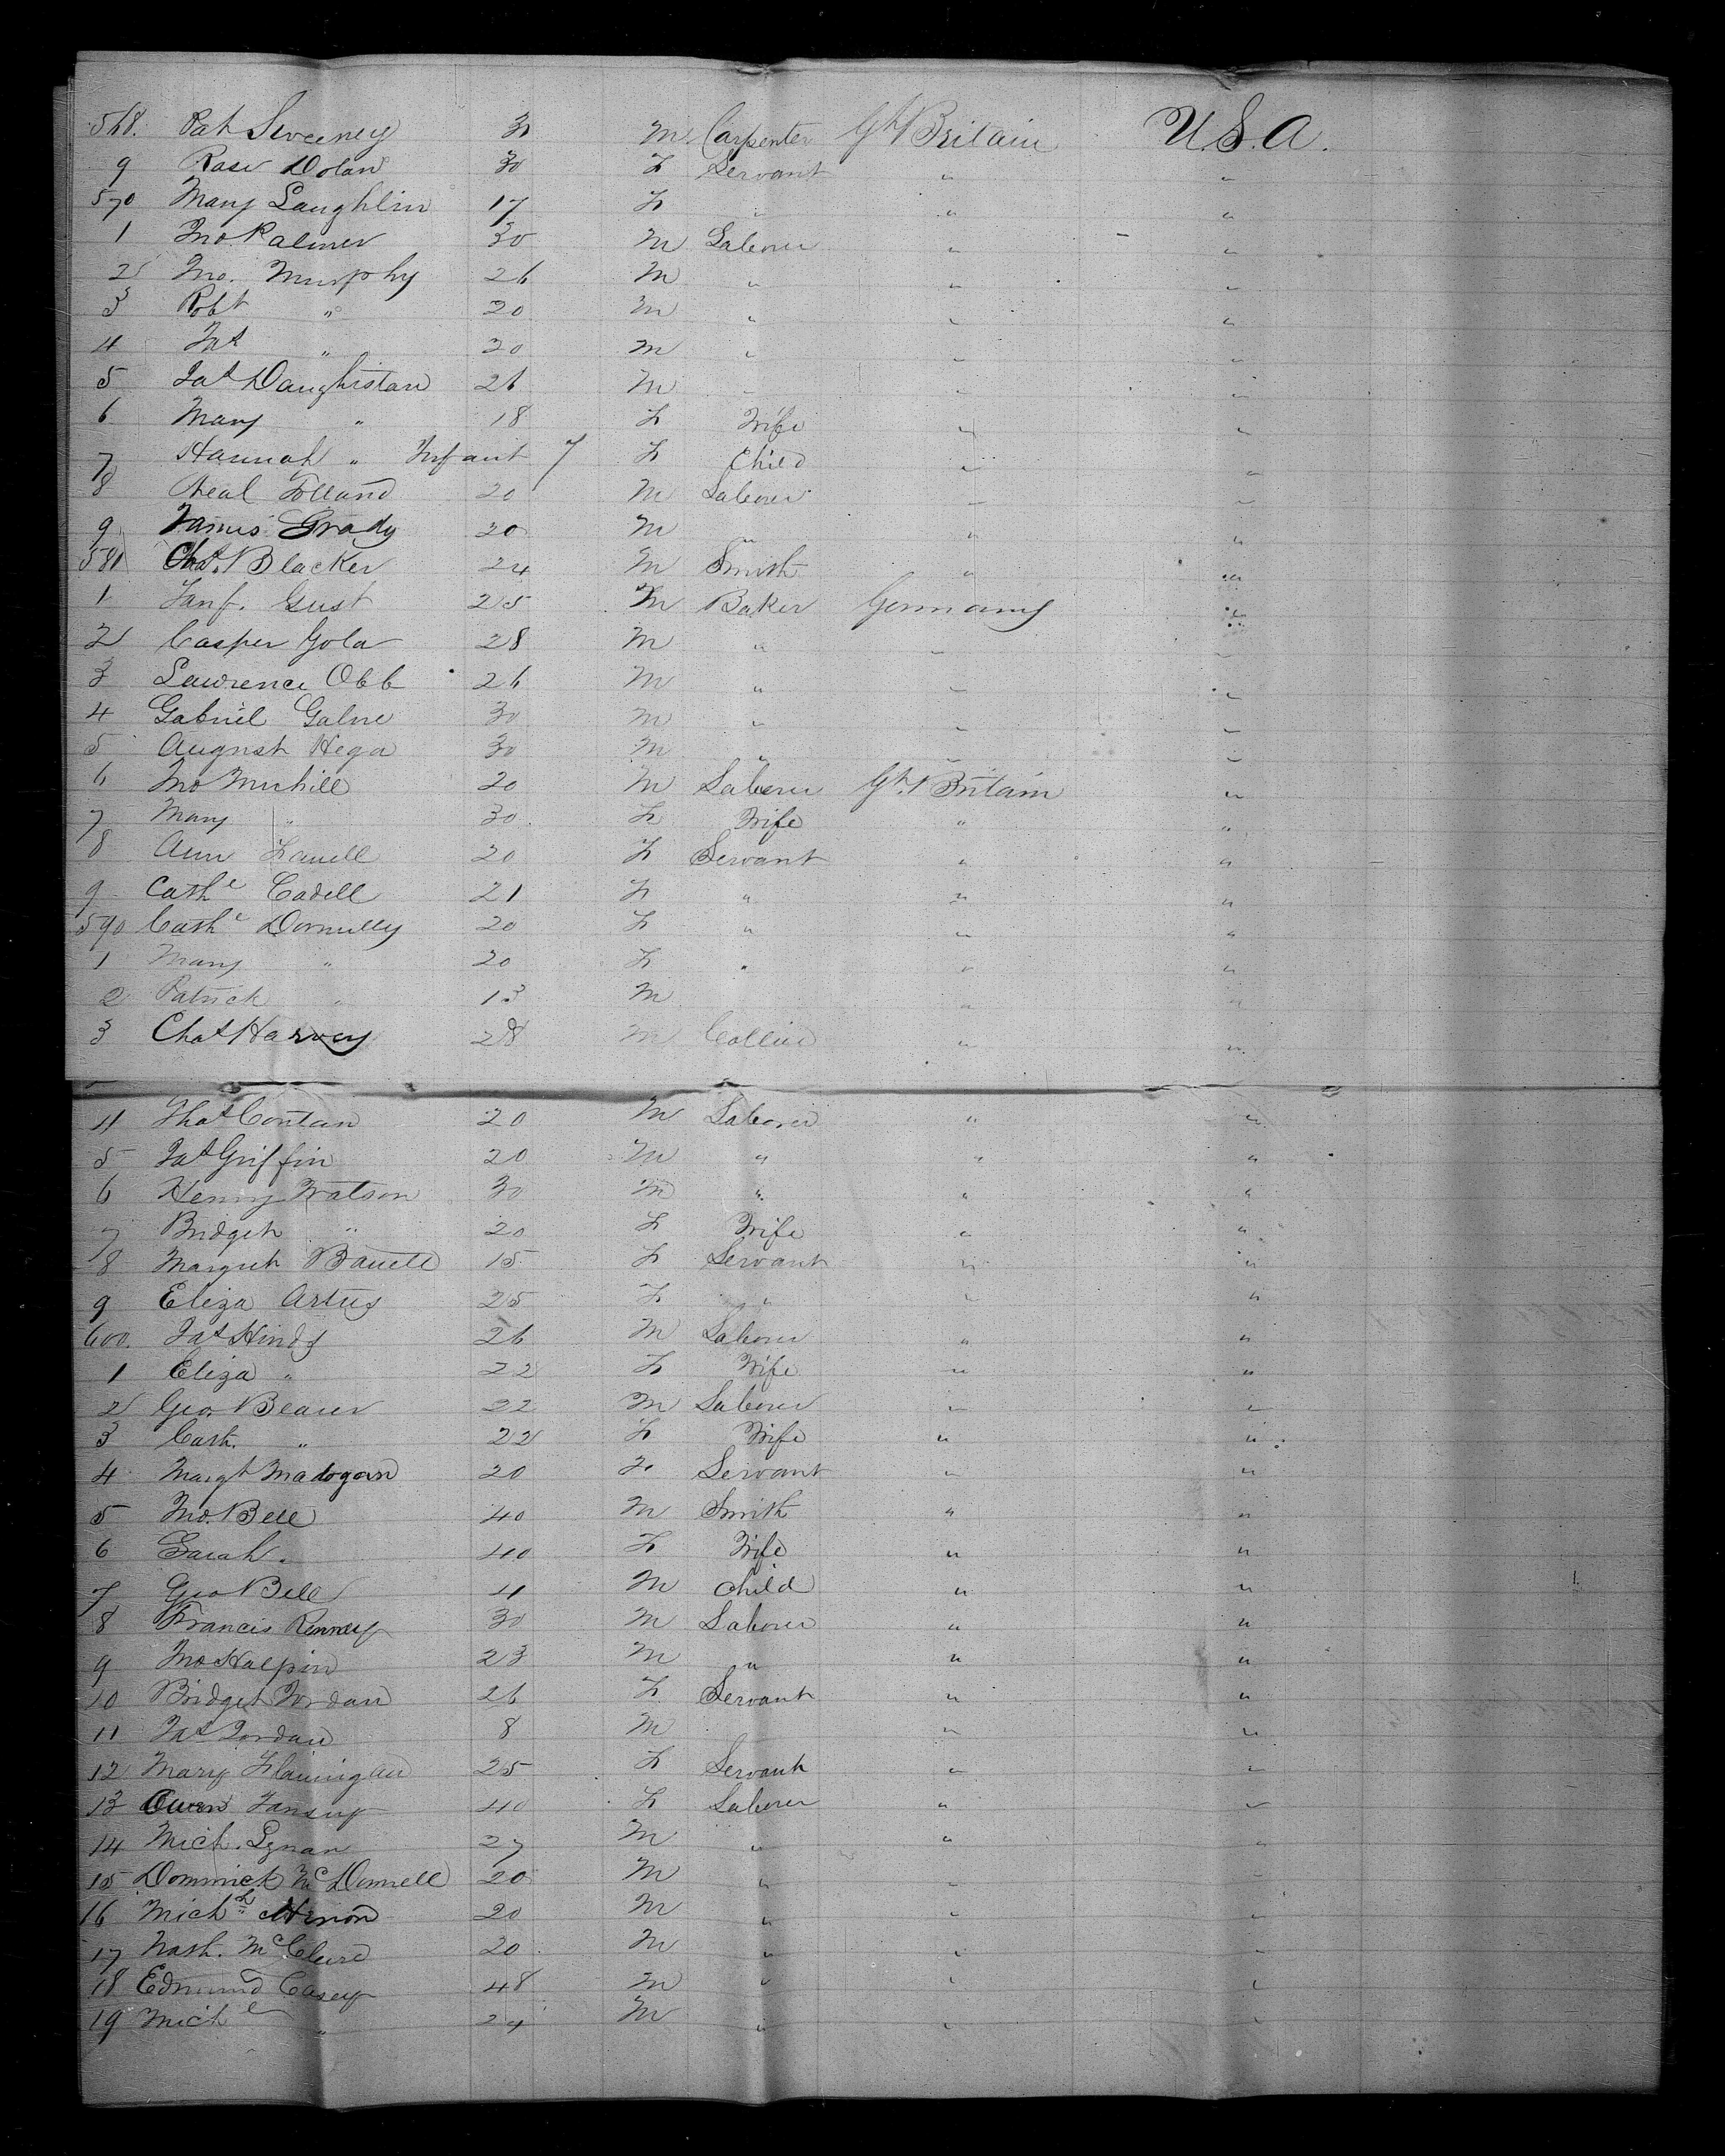 568. Pat Sweeney 30 M Carpenter Gt Britain U.S.A.
9 Rose Dolan 30 F Servant " "
570 Mary Laughlin 17 F " " "
1 Jno. Palmer 30 M Laborer " "
2 Jno. Murphy 26 M " " "
3 Robt " 20 M " " "
4 Jas " 20 M " " "
5 Jas Daughistan 26 M " " "
6 Mary " 18 F Wife " "
7 Hannah " Infant 7 F Child " "
8 Neal Folland 20 M Laborer " "
9 James Grady 20 M " " "
581 Chas. Blacker 24 M Smith " "
1 Gust 25 M Baker Germany "
2 Casper Gola 28 M " " "
3 Lawrence Obb 26 M " " "
4 Gabriel Galne 30 M " " "
5 August Hega 30 M " " "
6 Jno Muhill 20 M Laborer Gt. Britain "
7 Mary " 30 F Wife " "
8 Ann 20 F Servant " "
9 Cathe Cadell 21 F " " "
590 Cathe Donnelly 20 F " " "
1 Mary " 20 F " " "
2 Patrick " 13 M " "
3 Chas Harvey 28 M Collier " "
4 Thos Contan 20 M Laborer " "
5 Jas Griffin 20 M " " "
6 Henry Watson 30 M " " "
7 Bridget " 20 F Wife " "
8 Margret 15 F Servant " "
9 Eliza Artus 25 F " " "
600. Jas Hinds 26 M Laborer " "
1 Eliza " 22 F Wife " "
2 Geo. Beaver 22 M Laborer " "
3 Cath. " 22 F Wife " "
4 Margt Madogan 20 F Servant " "
5 Jno. Bell 40 M Smith " "
6 Sarah " 40 F Wife " "
7 Geo Bell 4 M Child " "
8 Francis Renney 30 M Laborer " "
9 Jno Halpin 23 M " " "
10 Bridget Jordan 26 F Servant " "
11 Jas Jordan 8 M " "
12 Mary Flannigan 25 F Servant " "
13 Owen Tansey 40 F Laborer " "
14 Mich. Lynan 27 M " " "
15 Dominick McDonnell 20 M " " "
16 Michl 20 M " " "
17 Nath. McClure 20 M " " "
18 Edmund Casey 48 M " " "
19 Michl " 24 M " " "